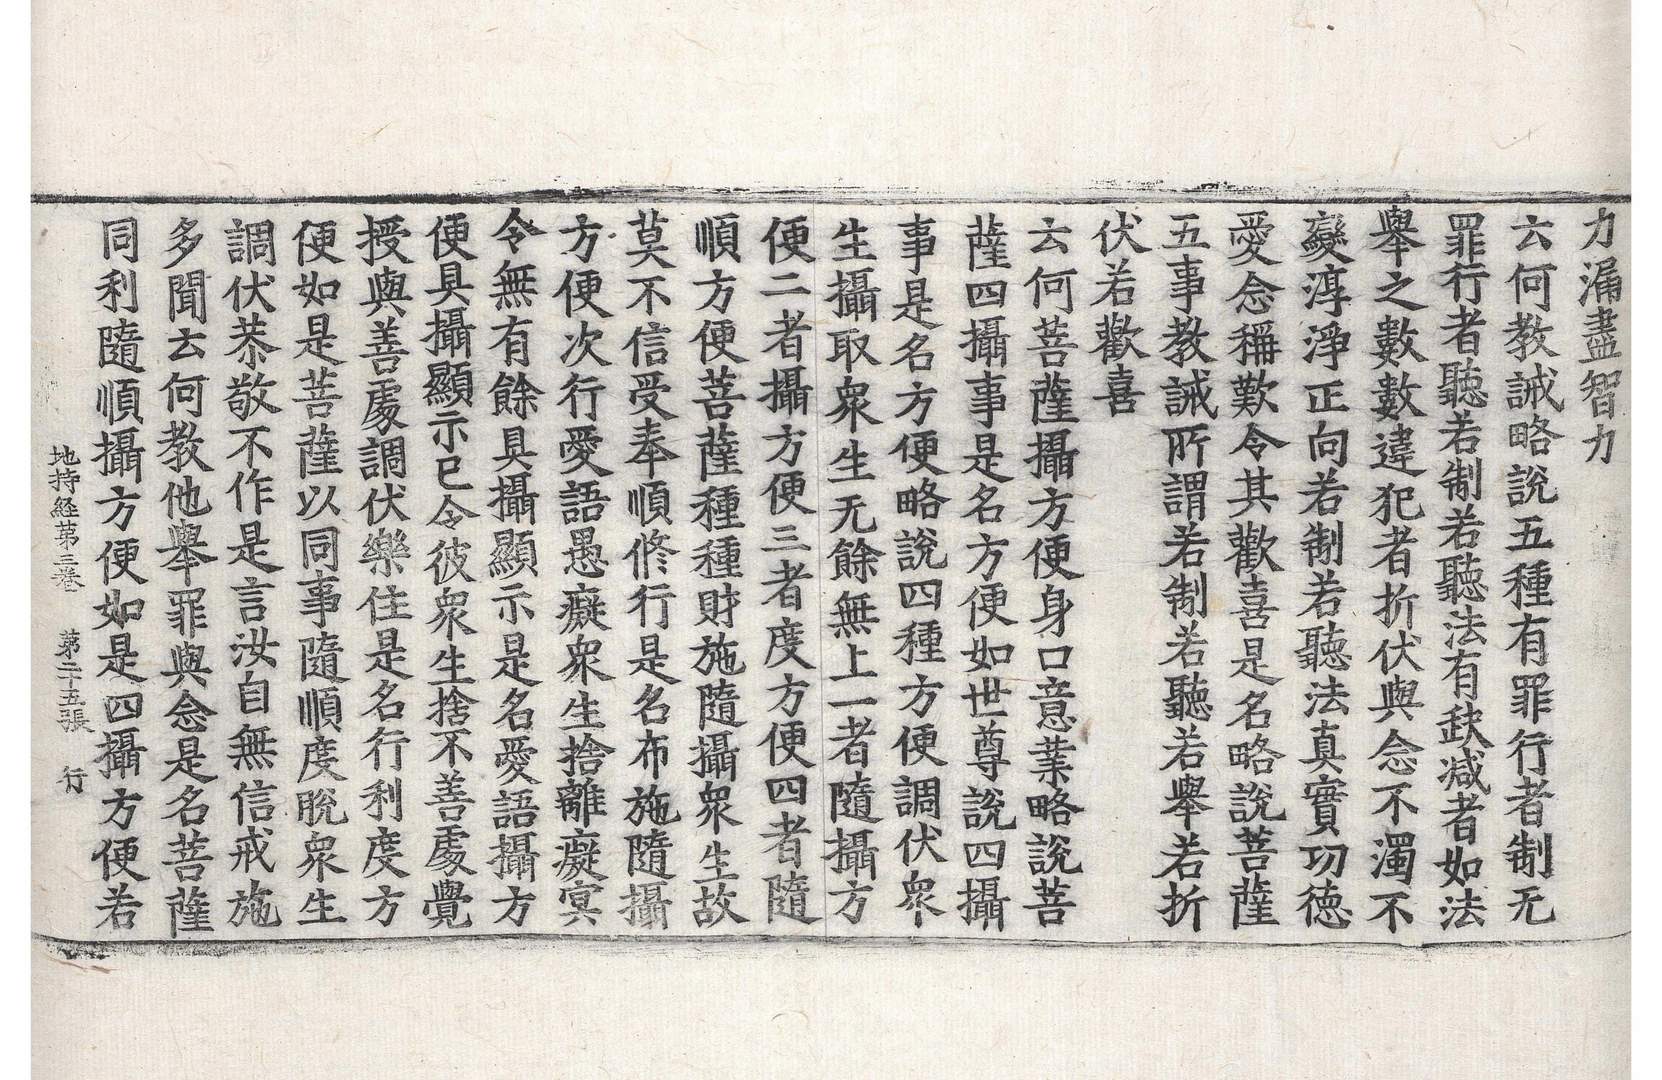 力漏盡智力
云何教誡略說五種有罪行者制无
罪行者聽若制若聽法有缺减者如法
舉之數數違犯者折伏與念不濁不
變淳淨正向若制若聽法真實功德
愛念稱歎令其歡喜是名略說菩薩
五事教誡所謂若制若聽若舉若折
伏若歡喜
云何菩薩攝方便身口意業略說菩
薩四攝事是名方便如世尊說四攝
事是名方便略說四種方便調伏衆
生攝取衆生无餘無上一者隨攝方
便二者攝方便三者度方便四者隨
順方便菩薩種種財施隨攝衆生故
莫不信受奉順修行是名布施隨攝
方便次行愛語愚癡衆生捨離癡冥
令無有餘具攝顯示是名愛語攝方
便具攝顯示已令彼衆生捨不善處覺
授與善處調伏樂住是名行利度方
便如是菩薩以同事隨順度脫衆生
調伏恭敬不作是言汝自無信戒施
多聞云何教他舉罪與念是名菩薩
同利隨順攝方便如是四攝方便若
地持経苐三巻 苐二十五張 行